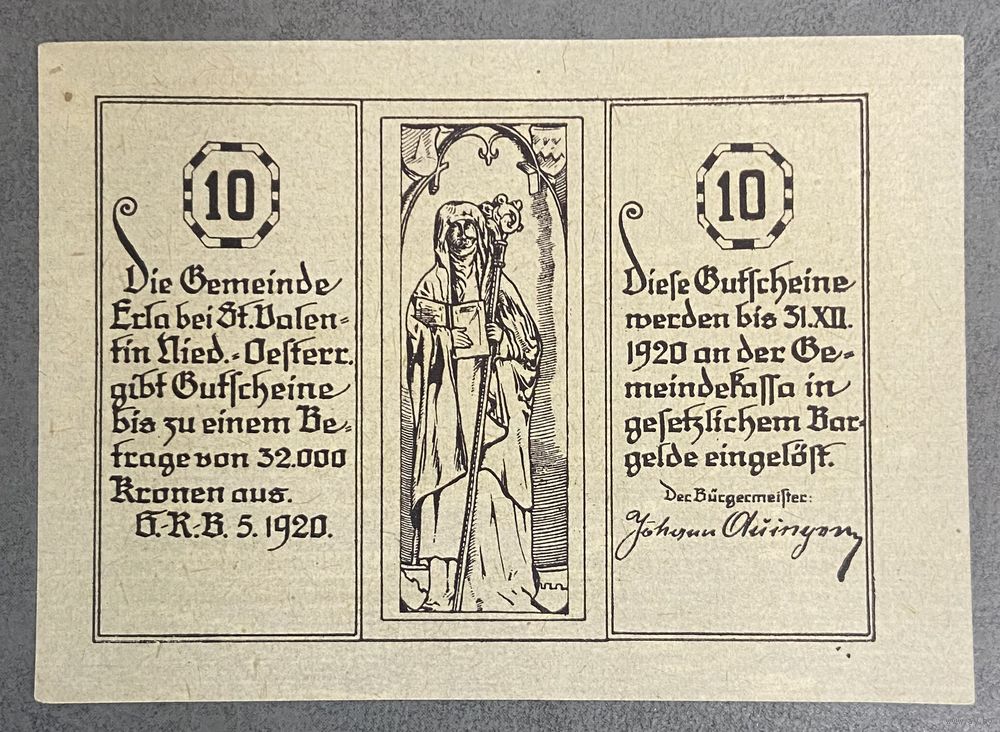 10
Die Gemeinde
Erla bei St. Valen-
tin Nied.-Oesterr.
gibt Gutscheine
bis zu einem Be-
trage von 32.000
Kronen aus.
G.-R.-B. 5. 1920.
10
Diese Gutscheine
werden bis 31.XII.
1920 an der Ge-
meindekassa in
gesetzlichem Bar-
gelde eingelöst.
Der Bürgermeister:
Johann